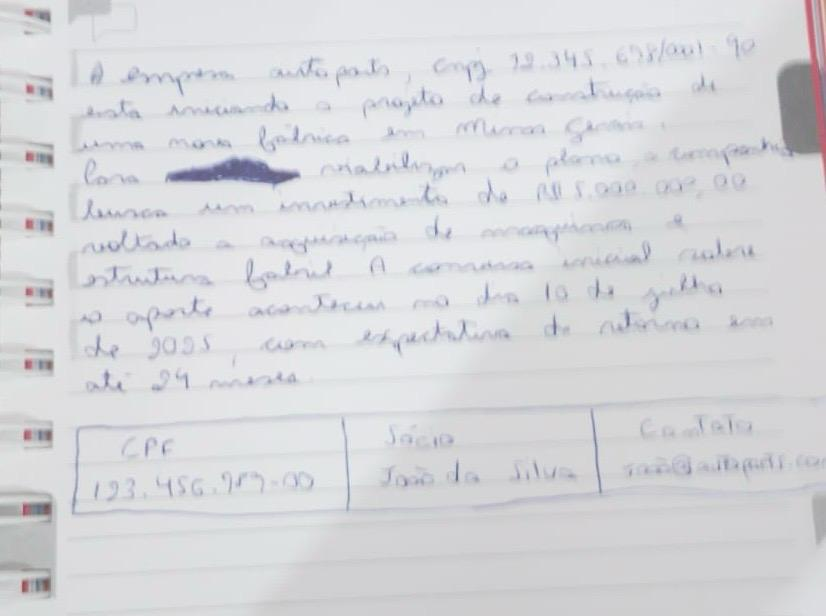 A empresa autoparts, cnpj 12.345.678/0001-90
esta iniciando o projeto de construção de
uma nova fábrica em Minas Gerais.
Para viabilizar o plano, a companhia
busca um investimento de R$ 5.000.000,00
voltado a aquisição de maquinas e
estrutura fabril A conversa inicial sobre
o aporte aconteceu no dia 10 de julho
de 2025, com expectativa de retorno em
até 24 meses.
CPF Sócio Contato
123.456.789-00 João da Silva joão@autoparts.com